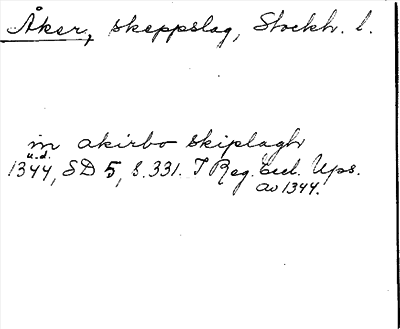 Åker, skeppslag, Stockh. l.
in akirbo skiplagh
u.d.
1344, SD 5, s. 331. I Reg. Eccl. Ups.
av 1344.